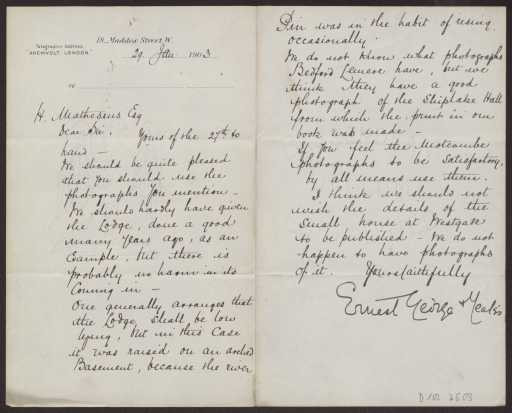 18, Maddox Street, W.
Telegraphic Address,
LONDON
29. 1903
H. Mathesius Esq
Dear Sir. Yours of the 27th to
hand –
We should be quite pleased
that you should use the
photographs you mention –
We should hardly have given
the Lodge, done a good
many years ago, as an
Example, but there is
probably no harm in its
Coming in –
One generally arranges that
the Lodge shall be low
lying, but in this case
it was raised on an arched
Basement, because the river
was in the habit of rising
occasionally.
We do not know what photographs
Bedford Lemere have, but we
think they have a good
photograph of the Shiplake Hall
from which the print in our
book was made –
If you feel the Motcombe
photographs to be satisfactory,
by all means use them.
I think we should not
wish the details of the
Small house at Westgate
to be published – We do not
happen to have photographs
of it. Yours faithfully
Ernest George & Yeates